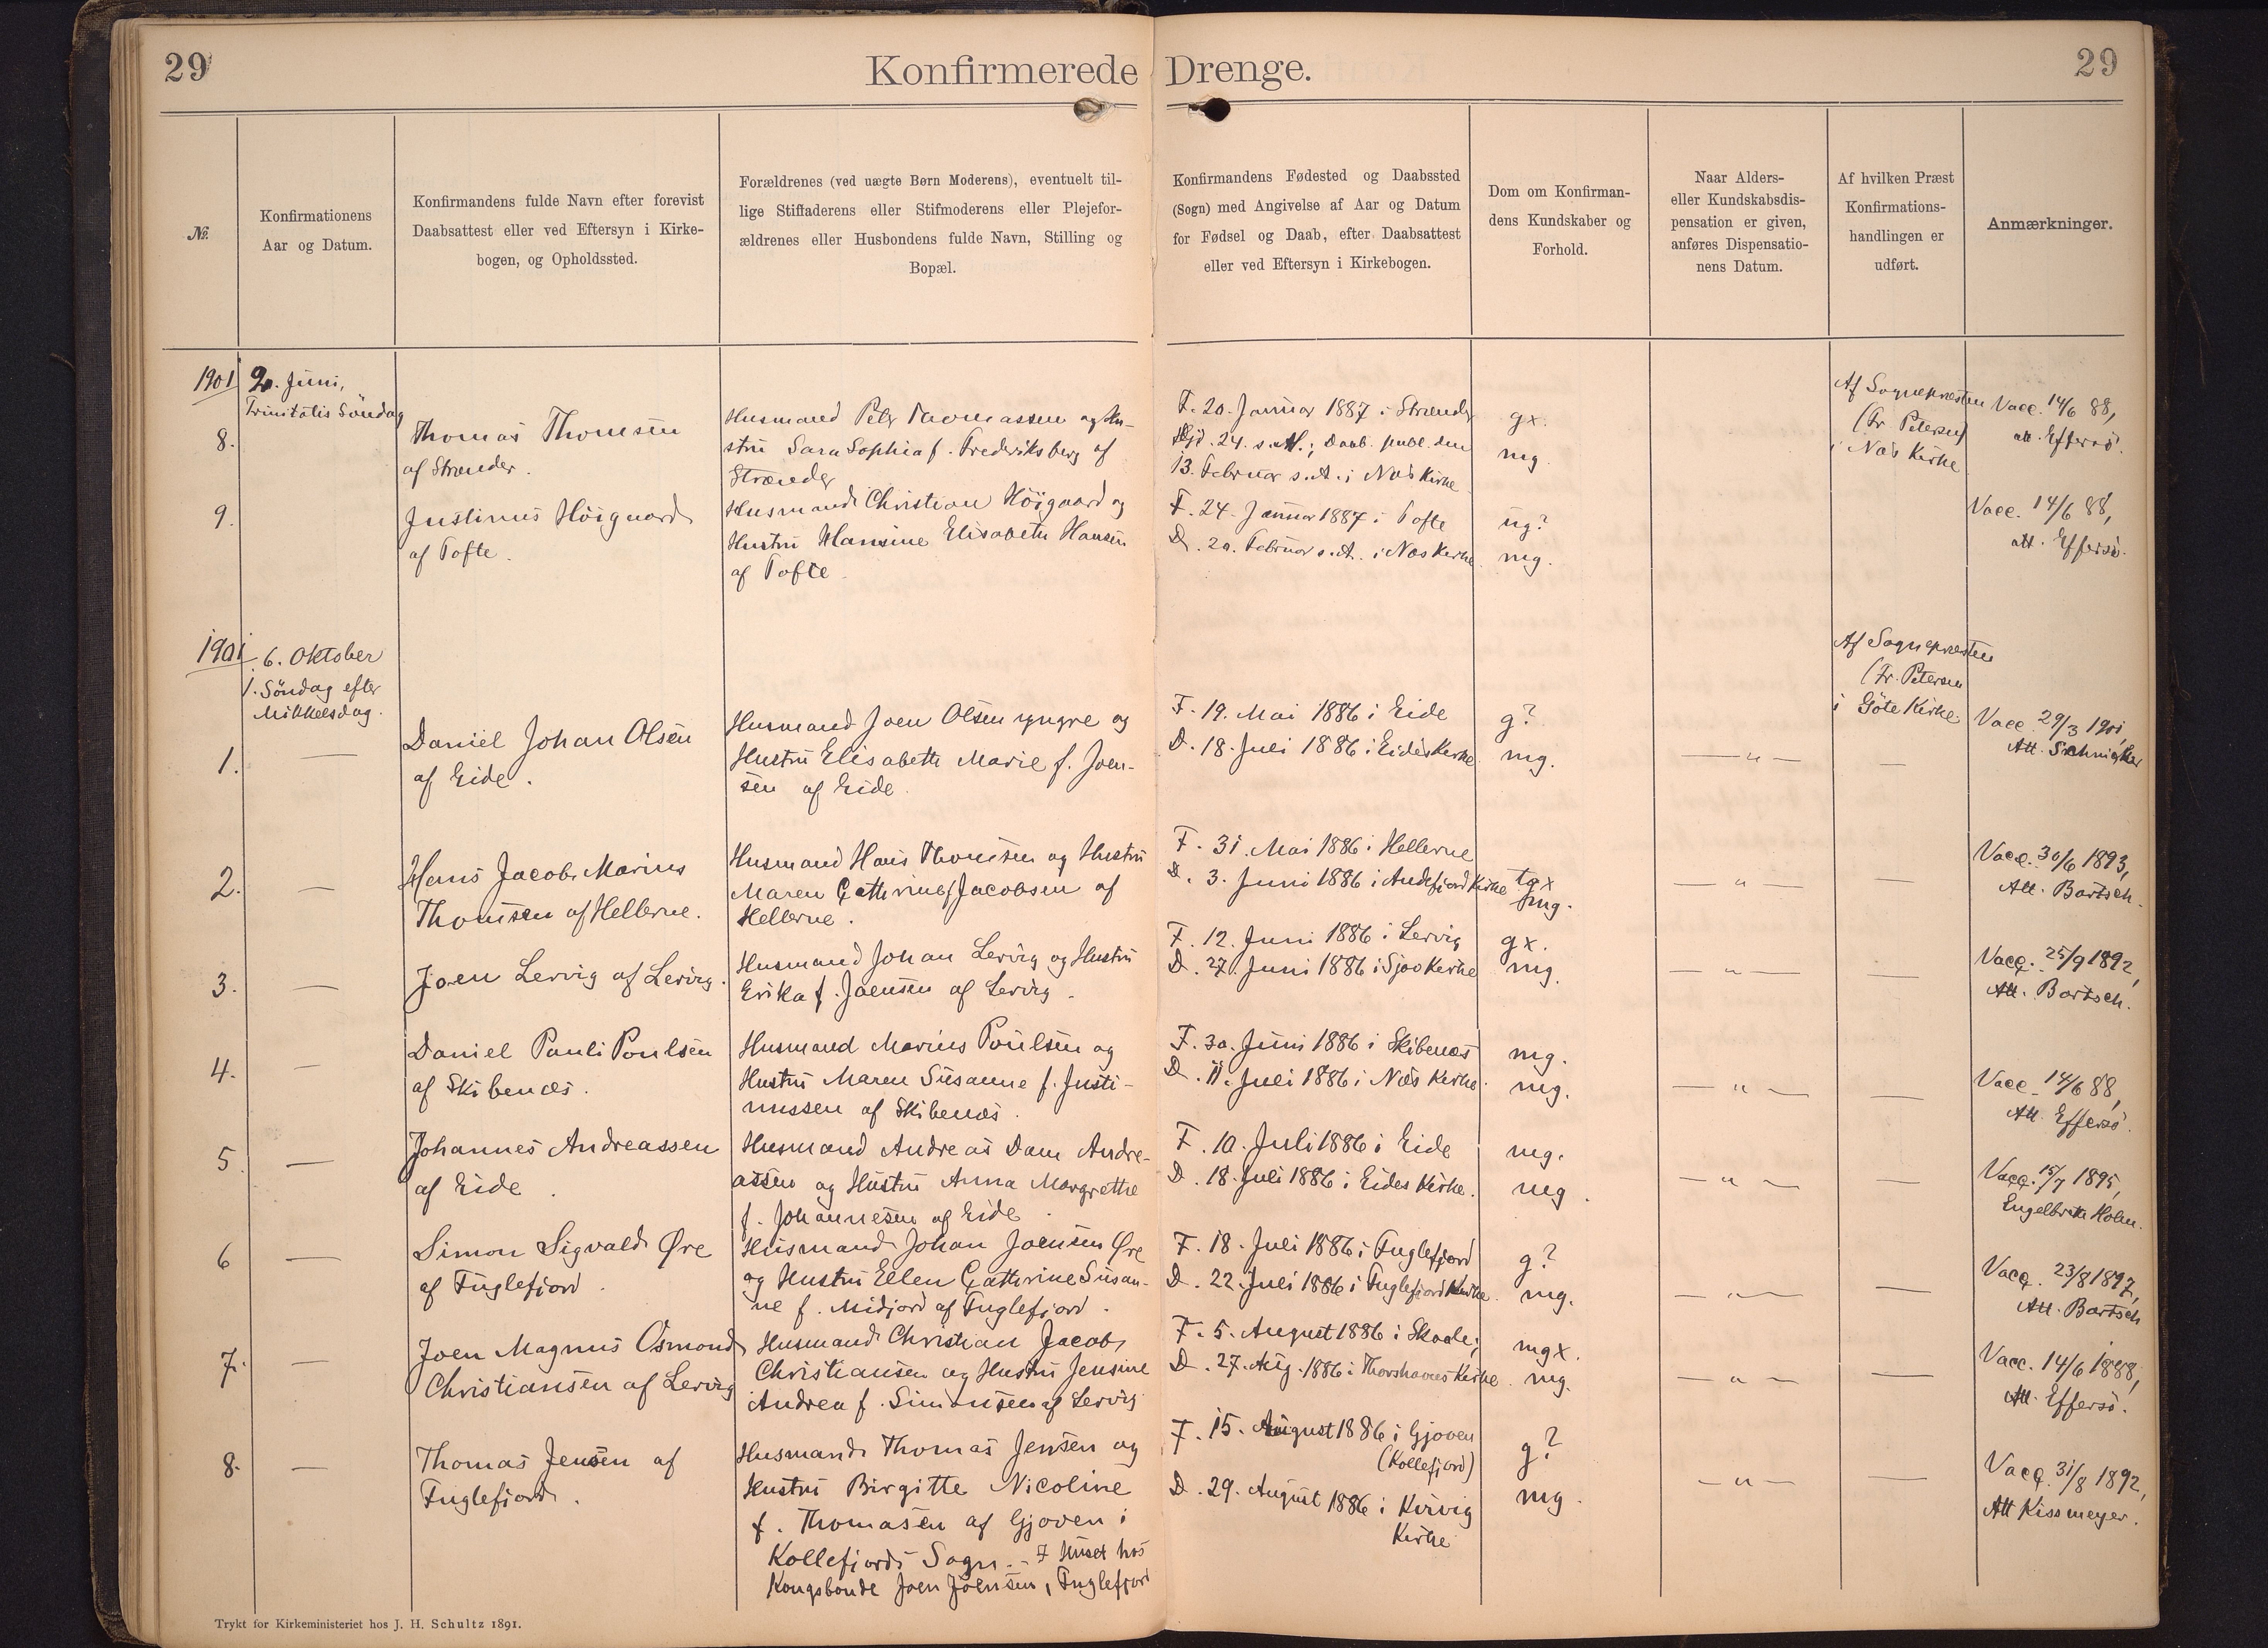 29
Konfirmerede Drenge.
29
№
Konfirmationens
Aar og Datum.
Konfirmandens fulde Navn efter forevist
Daabsattest eller ved Eftersyn i Kirke-
bogen, og Opholdssted.
Forældrenes (ved uægte Børn Moderens), eventuelt til-
lige Stiffaderens eller Stifmoderens eller Plejefor-
ældrenes eller Husbondens fulde Navn, Stilling og
Bopæl.
Konfirmandens Fødested og Daabssted
(Sogn) med Angivelse af Aar og Datum
for Fødsel og Daab, efter Daabsattest
eller ved Eftersyn i Kirkebogen.
Dom om Konfirman-
dens Kundskaber og
Forhold.
Naar Alders-
eller Kundskabsdis-
pensation er given,
anføres Dispensatio-
nens Datum.
Af hvilken Præst
Konfirmations-
handlingen er
udført.
Anmærkninger.
1901
2. Juni,
Trinitatis Søndag
8.
Thomas Thomsen
af Strænder.
Husmand Peter Thomassen og Hu-
stru Sara Sophia f. Frederiksberg af
Strænder
F. 20. Januar 1887 i Strænder
Hjd. 24. s. M.; Daab. publ. den
13. Februar s. A. i Næs Kirke
gx.
mg.
Af Sognepræsten
(Fr. Petersen)
i Næs Kirke
Vacc. 14/6 88,
att. Effersø.
9.
Justinus Höigaard
af Tofte.
Husmand Christian Höigaard og
Hustru Hansine Elisabeth Hansen
af Tofte
F. 24. Januar 1887 i Tofte
D. 20. Februar s. A. i Næs Kirke
ug?
mg.
Vacc. 14/6 88,
att. Effersø.
1901
6. Oktober
1. Søndag efter
Mikkelsdag.
Af Sognepræsten
(Fr. Petersen
i Göte Kirke
1.
—
Daniel Johan Olsen
af Eide.
Husmand Joen Olsen yngre og
Hustru Elisabeth Marie f. Joen-
sen af Eide.
F. 19. Mai 1886 i Eide
D. 18. Juli 1886 i Eides Kirke
g?
mg.
— " —
—
Vacc. 29/3 1901,
Att. Schmidker
2.
—
Hans Jacob Marius
Thomsen af Hellerne.
Husmand Hans Thomsen og Hustru
Maren Cathrine f. Jacobsen af
Hellerne.
F. 31. Mai 1886 i Hellerne
D. 3. Juni 1886 i Andefjord Kirke
tgx
mg.
— " —
—
Vacc. 30/6 1893,
Att. Bartsch.
3.
—
Joen Lervig af Lervig.
Husmand Johan Lervig og Hustru
Erika f. Joensen af Lervig.
F. 12. Juni 1886 i Lervig
D. 27. Juni 1886 i Sjov Kirke
gx.
mg.
— " —
—
Vacc. 25/9 1892,
Att. Bartsch.
4.
—
Daniel Pauli Poulsen
af Skibenæs.
Husmand Marius Poulsen og
Hustru Maren Susanne f. Justi-
nussen af Skibenæs.
F. 30. Juni 1886 i Skibenæs
D. 11. Juli 1886 i Næs Kirke.
mg.
mg.
— " —
—
Vacc. 14/6 88,
Att. Effersø.
5.
—
Johannes Andreassen
af Eide.
Husmand Andreas Dam Andre-
assen og Hustru Anna Margrethe
f. Johannesen af Eide.
F. 10. Juli 1886 i Eide
D. 18. Juli 1886 i Eides Kirke.
mg.
mg.
— " —
—
Vacc. 15/7 1895,
Engelbreth Holm.
6
—
Simon Sigvald Øre
af Fuglefjord.
Husmand Johan Joensen Øre
og Hustru Ellen Cathrine Susan-
ne f. Midjord af Fuglefjord.
F. 18. Juli 1886 i Fuglefjord
D. 22. Juli 1886 i Fuglefjord Kirke.
g?
mg.
— " —
—
Vacc. 23/8 1897,
Att. Bartsch
7.
—
Joen Magnus Osmond
Christiansen af Lervig
Husmand Christian Jacob
Christiansen og Hustru Jensine
Andrea f. Simonsen af Lervig
F. 5. August 1886 i Skaale;
D. 27. Aug. 1886 i Thorshavns Kirke.
mgx.
mg.
— " —
—
Vacc. 14/6 1888,
Att. Effersø.
8.
—
Thomas Jensen af
Fuglefjord.
Husmand Thomas Jensen og
Hustru Birgitte Nicoline
f. Thomasen af Gjoven i
Kollefjords Sogn. – I Huset hos
Kongsbonde Joen Joensen, Fuglefjord
F. 15. August 1886 i Gjoven
(Kollefjord)
D. 29. August 1886 i Kvivig
Kirke
g?
mg.
— " —
—
Vacc. 31/8 1892,
Att Kissmeyer.
Trykt for Kirkeministeriet hos J. H. Schultz 1891.